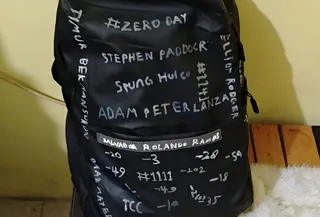 #ZERO DAY
STEPHEN PADDOCK
SEUNG HUI CO
#1141
ADAM PETER LANZA
ELLIOT RODGER
TIMUR BEKMANSUROV
SALVADOR ROLANDO RAMOS
-20 -3 -28 -59
-49 #1111 -202
-49 -18
TCC -10